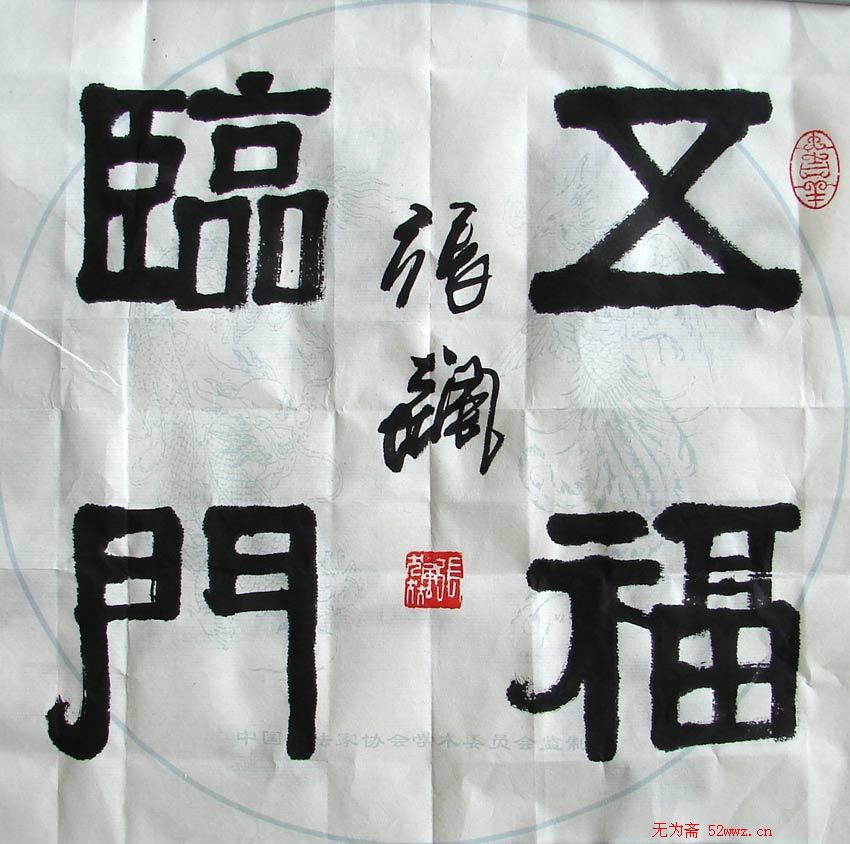 五福
臨門
張飆
中国书法家协会学术委员会监制
无为斋 52wwz.cn